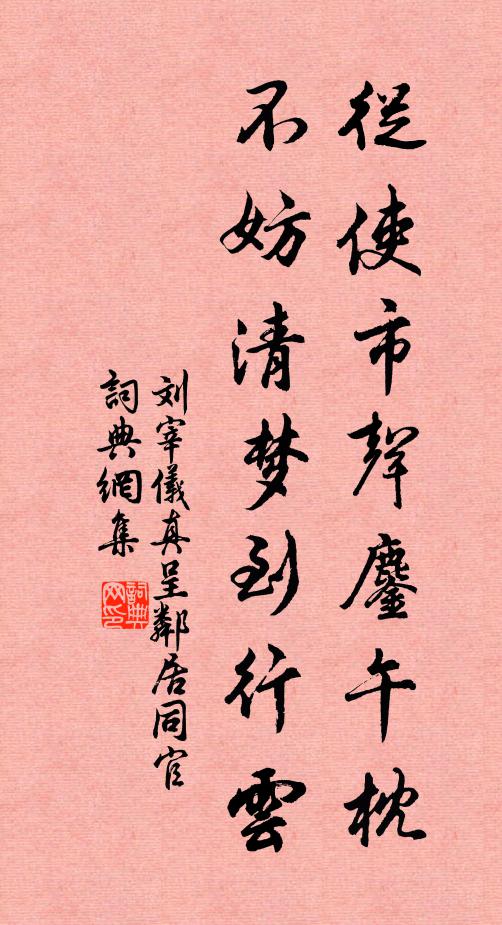 從使市聲鏖午枕
不妨清梦到行雲
刘宰儀真呈鄰居同官
詞典網集
詞典网印